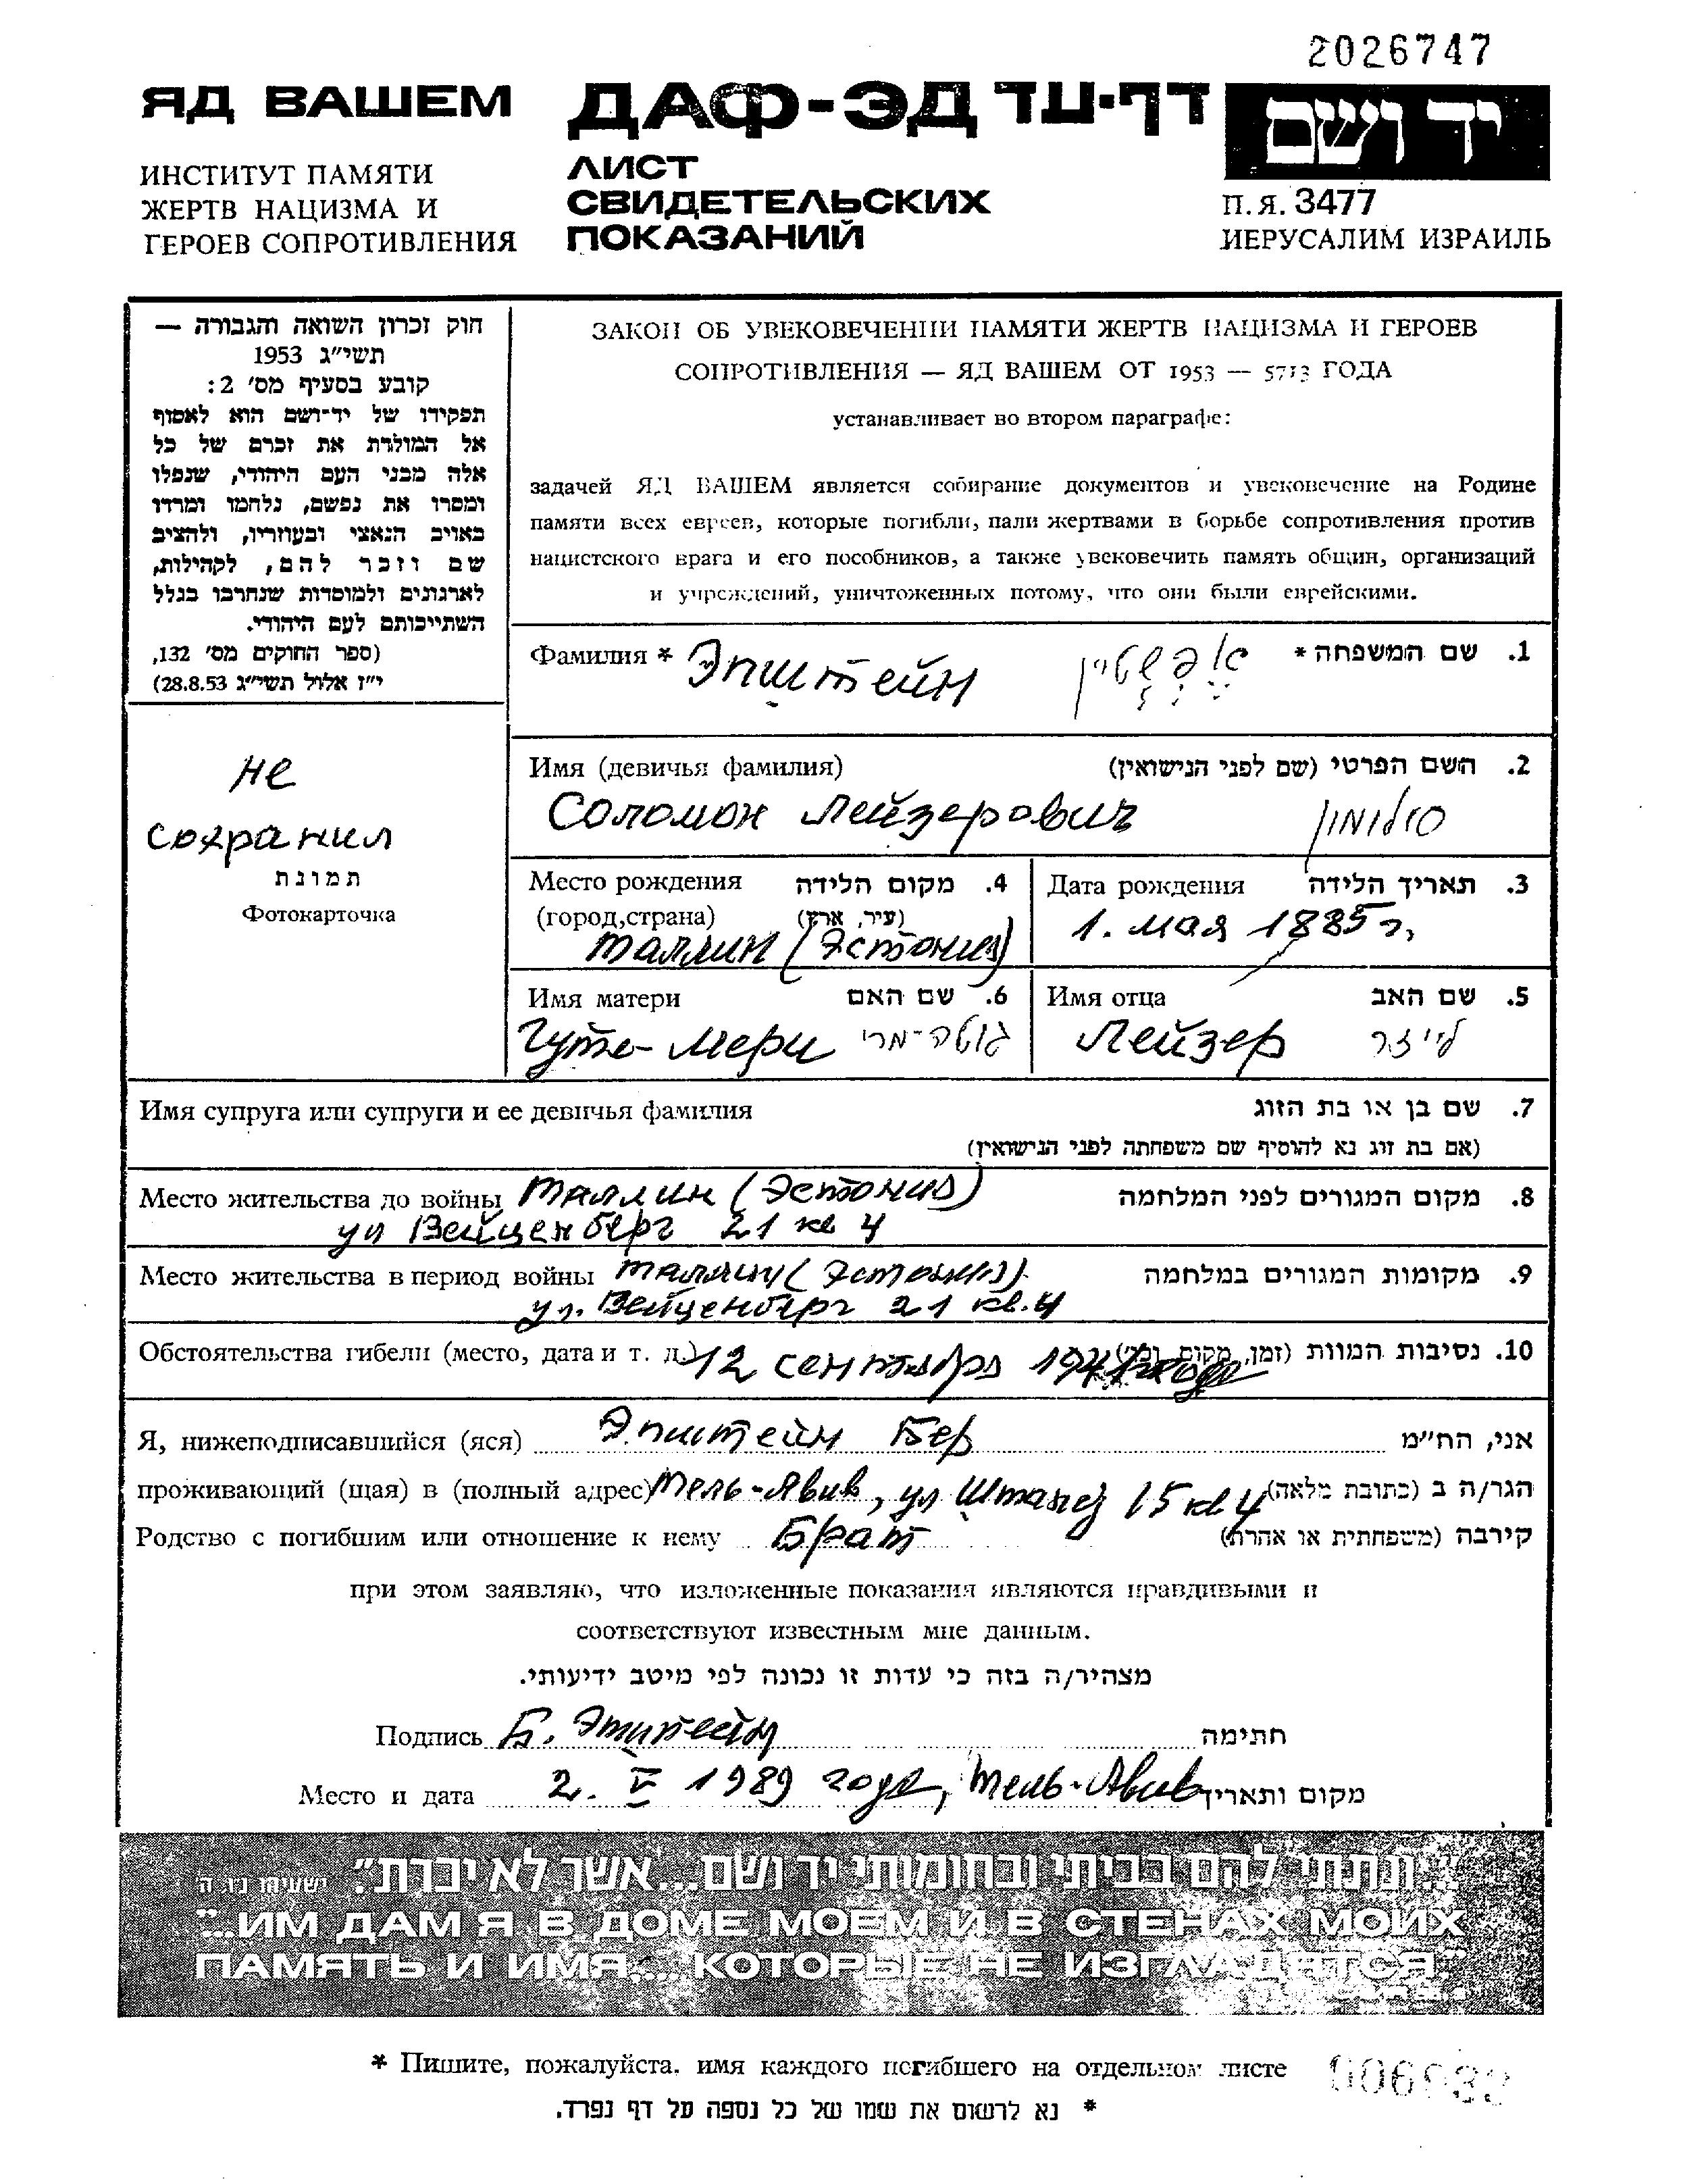 2026747
ЯД ВАШЕМ
ИНСТИТУТ ПАМЯТИ
ЖЕРТВ НАЦИЗМА И
ГЕРОЕВ СОПРОТИВЛЕНИЯ
ДАФ-ЭД דף-עד
ЛИСТ
СВИДЕТЕЛЬСКИХ
ПОКАЗАНИЙ
יד ושם
П.Я. 3477
ИЕРУСАЛИМ ИЗРАИЛЬ
חוק זכרון השואה והגבורה —
תשי״ג 1953
קובע בסעיף מס׳ 2:
תפקידו של יד-ושם הוא לאסוף
אל המולדת את זכרם של כל
אלה מבני העם היהודי, שנפלו
ומסרו את נפשם, נלחמו ומרדו
באויב הנאצי ובעוזריו, ולהציב
שם וזכר להם, לקהילות,
לארגונים ולמוסדות שנחרבו בגלל
השתייכותם לעם היהודי.
(ספר החוקים מס׳ 132,
י״ז אלול תשי״ג 28.8.53)
ЗАКОН ОБ УВЕКОВЕЧЕНИИ ПАМЯТИ ЖЕРТВ НАЦИЗМА И ГЕРОЕВ
СОПРОТИВЛЕНИЯ — ЯД ВАШЕМ ОТ 1953 — 5713 ГОДА
устанавливает во втором параграфе:
задачей ЯД ВАШЕМ является собирание документов и увековечение на Родине
памяти всех евреев, которые погибли, пали жертвами в борьбе сопротивления против
нацистского врага и его пособников, а также увековечить память общин, организаций
и учреждений, уничтоженных потому, что они были еврейскими.
Фамилия * Эпштейн אפשטיין 1. שם המשפחה *
не
сохранил
תמונת
Фотокарточка
Имя (девичья фамилия) 2. השם הפרטי (שם לפני הנישואין)
Соломон Лейзерович סולומון
Место рождения 4. מקום הלידה
(город,страна) (עיר, ארץ)
Таллин (Эстония)
Дата рождения 3. תאריך הלידה
1. мая 1885 г,
Имя матери 6. שם האם
Гуте-Мери גוטה-מרי
Имя отца 5. שם האב
Лейзер לייזר
Имя супруга или супруги и ее девичья фамилия 7. שם בן או בת הזוג
(אם בת זוג נא להוסיף שם משפחתה לפני הנישואין)
Место жительства до войны Таллин (Эстония) 8. מקום המגורים לפני המלחמה
ул Вейценберг 21 кв 4
Место жительства в период войны Таллин (Эстония) 9. מקומות המגורים במלחמה
ул. Вейценберг 21 кв. 4
Обстоятельства гибели (место, дата и т. д.) 12 сентября 1941 года 10. נסיבות המוות (זמן, מקום וכו׳)
Я, нижеподписавшийся (яся) Эпштейн Бер אני, הח״מ
проживающий (щая) в (полный адрес) Тель-Авив, ул Штанд 15 кв 4 הגר/ה ב (כתובת מלאה)
Родство с погибшим или отношение к нему Брат קירבה (משפחתית או אחרת)
при этом заявляю, что изложенные показания являются правдивыми и
соответствуют известным мне данным.
מצהיר/ה בזה כי עדות זו נכונה לפי מיטב ידיעותי.
Подпись Б. Эпштейн חתימה
Место и дата 2. V 1989 года, Тель-Авив מקום ותאריך
"...ונתתי להם בביתי ובחומותי יד ושם...אשר לא יכרת". ישעיהו נו, ה
"...ИМ ДАМ Я В ДОМЕ МОЕМ И В СТЕНАХ МОИХ
ПАМЯТЬ И ИМЯ.... КОТОРЫЕ НЕ ИЗГЛАДЯТСЯ."
* Пишите, пожалуйста, имя каждого погибшего на отдельном листе
* נא לרשום את שמו של כל נספה על דף נפרד.